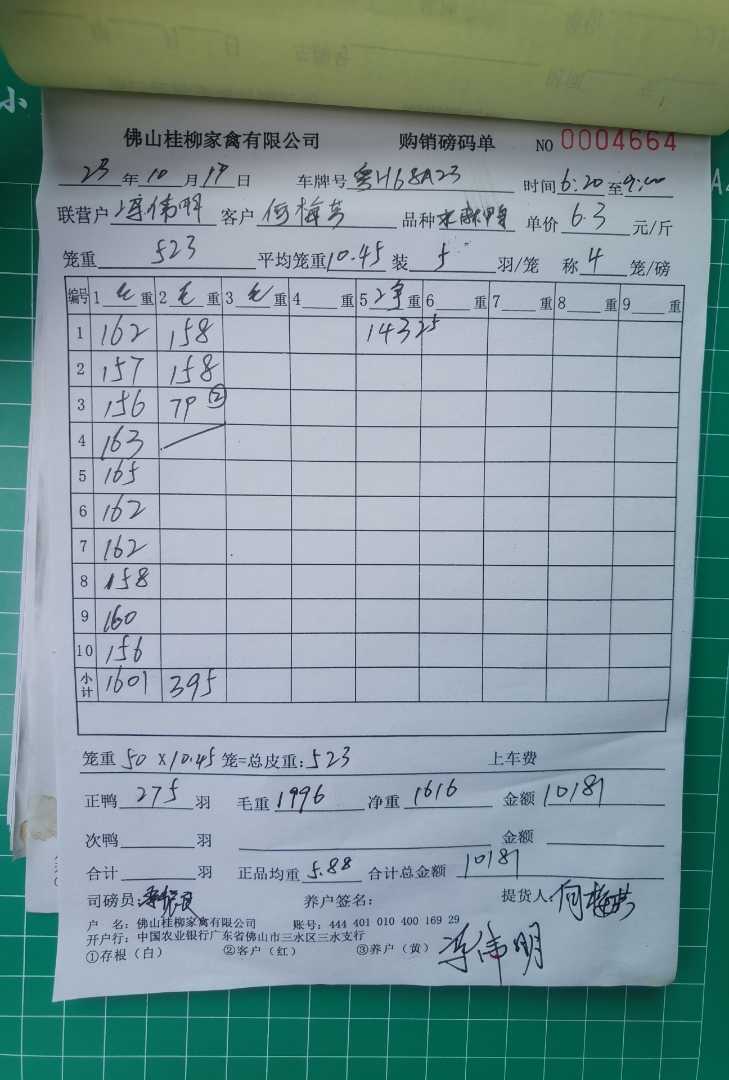 佛山桂柳家禽有限公司 购销磅码单 NO 0004664
23年10月17日 车牌号 粤H68A23 时间6:20至9:00
联营户 冯伟明 客户 何梅芳 品种 单价 6.3 元/斤
笼重 523 平均笼重10.45 装 5 羽/笼 称 4 笼/磅
编号 1毛重 2毛重 3毛重 4重 5净重 6重 7重 8重 9重
1 162 158 1432
2 157 158
3 156 79②
4 163
5 165
6 162
7 162
8 158
9 160
10 156
小计 1601 395
笼重 50×10.45 笼=总皮重:523 上车费
正鸭 275 羽 毛重 1996 净重 1616 金额 10181
次鸭 羽 金额
合计 羽 正品均重 5.88 合计总金额 10181
司磅员: 养户签名: 提货人:
户 名:佛山桂柳家禽有限公司 账号:444 401 010 400 169 29
开户行:中国农业银行广东省佛山市三水区三水支行
①存根(白) ②客户(红) ③养户(黄) 冯伟明